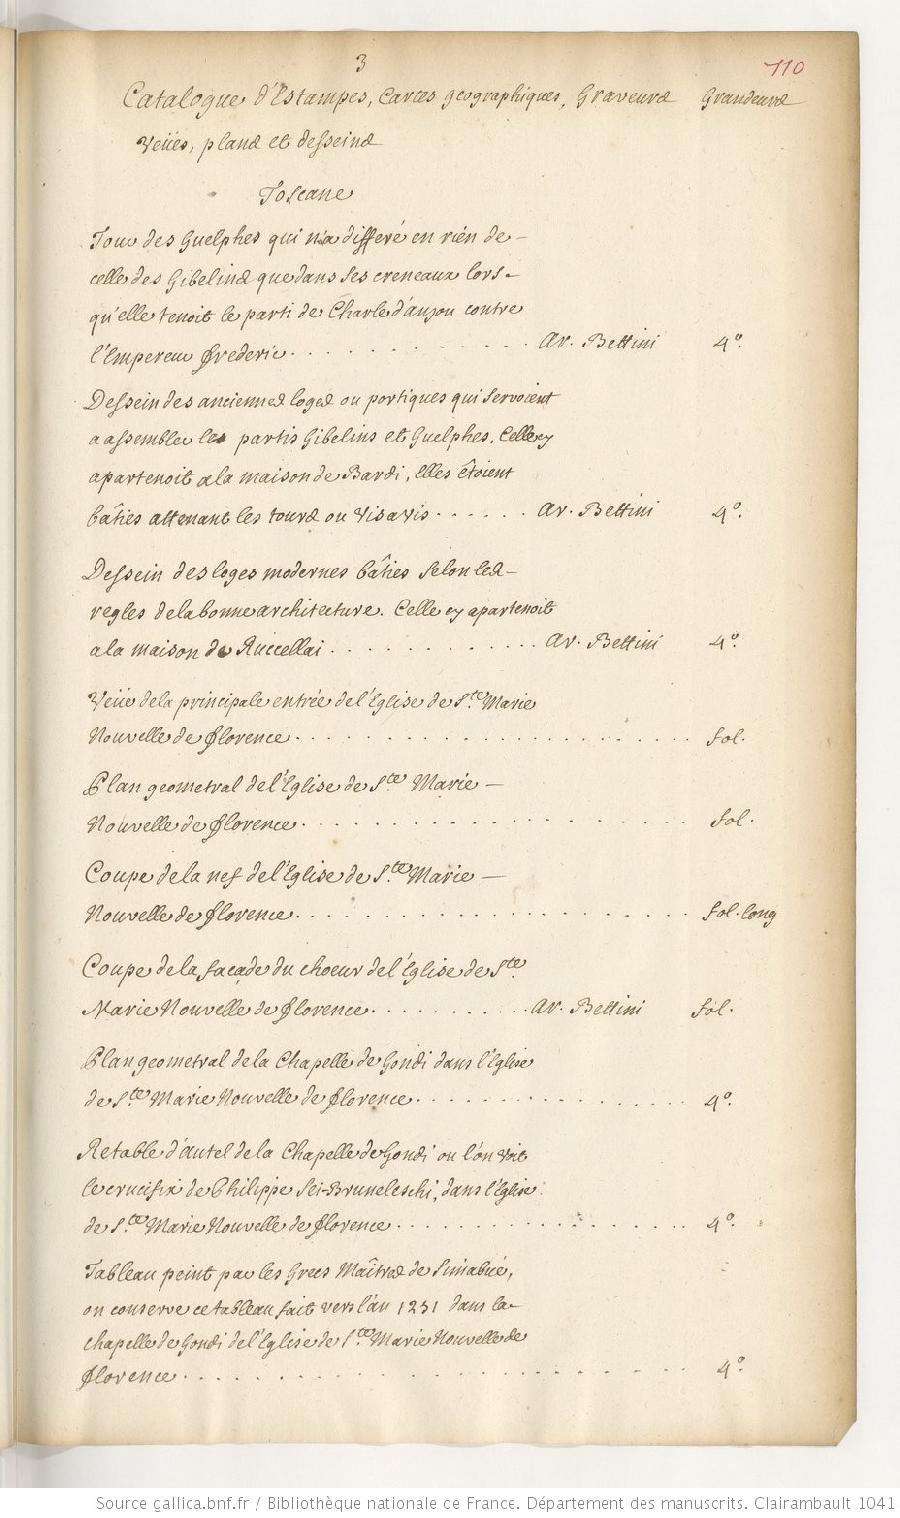 3
110
Catalogue d'Estampes, Cartes geographiques, Graveurs Grandeurs
Veües, plans et desseins
Toscane
Tour des Guelphes qui n'a differé en rien de
celle des Gibelins que dans ses creneaux lors-
qu'elle tenoit le parti de Charle d'anjou contre
l'Empereur frederic. Av. Bettini 4º.
Dessein des anciennes loges ou portiques qui servoient
a assembler les partis Gibelins et Guelphes. Celle cy
apartenoit a la maison de Bardi, Elles êtoient
bâties attenant les tours ou visavis. Av. Bettini 4º.
Dessein des loges modernes bâties selon les
regles de la bonne architecture. Celle cy apartenoit
a la maison de Ruccellai. Av. Bettini 4º.
Veüe de la principale entrée de l'Eglise de Ste. Marie
Nouvelle de florence. fol.
Plan geometral de l'Eglise de Ste Marie
Nouvelle de florence. fol.
Coupe de la nef de l'Eglise de Ste. Marie
Nouvelle de florence. fol. long
Coupe de la façade du choeur de l'Eglise de Ste.
Marie Nouvelle de florence. Av. Bettini fol.
Plan geometral de la Chapelle de Gondi dans l'Eglise
de Ste. Marie Nouvelle de florence. 4º.
Retable d'autel de la Chapelle de Gondi ou l'on voit
le crucifix de Philippe Sei-Bruneleschi, dans l'Eglise
de Ste. Marie Nouvelle de florence. 4º.
Tableau peint par les Grecs Maîtres de Simabué,
on conserve ce tableau fait vers l'an 1231 dans la
chapelle de Gondi de l'Eglise de Ste. Marie Nouvelle de
florence. 4º.
Source gallica.bnf.fr / Bibliothèque nationale de France. Département des manuscrits. Clairambault 1041